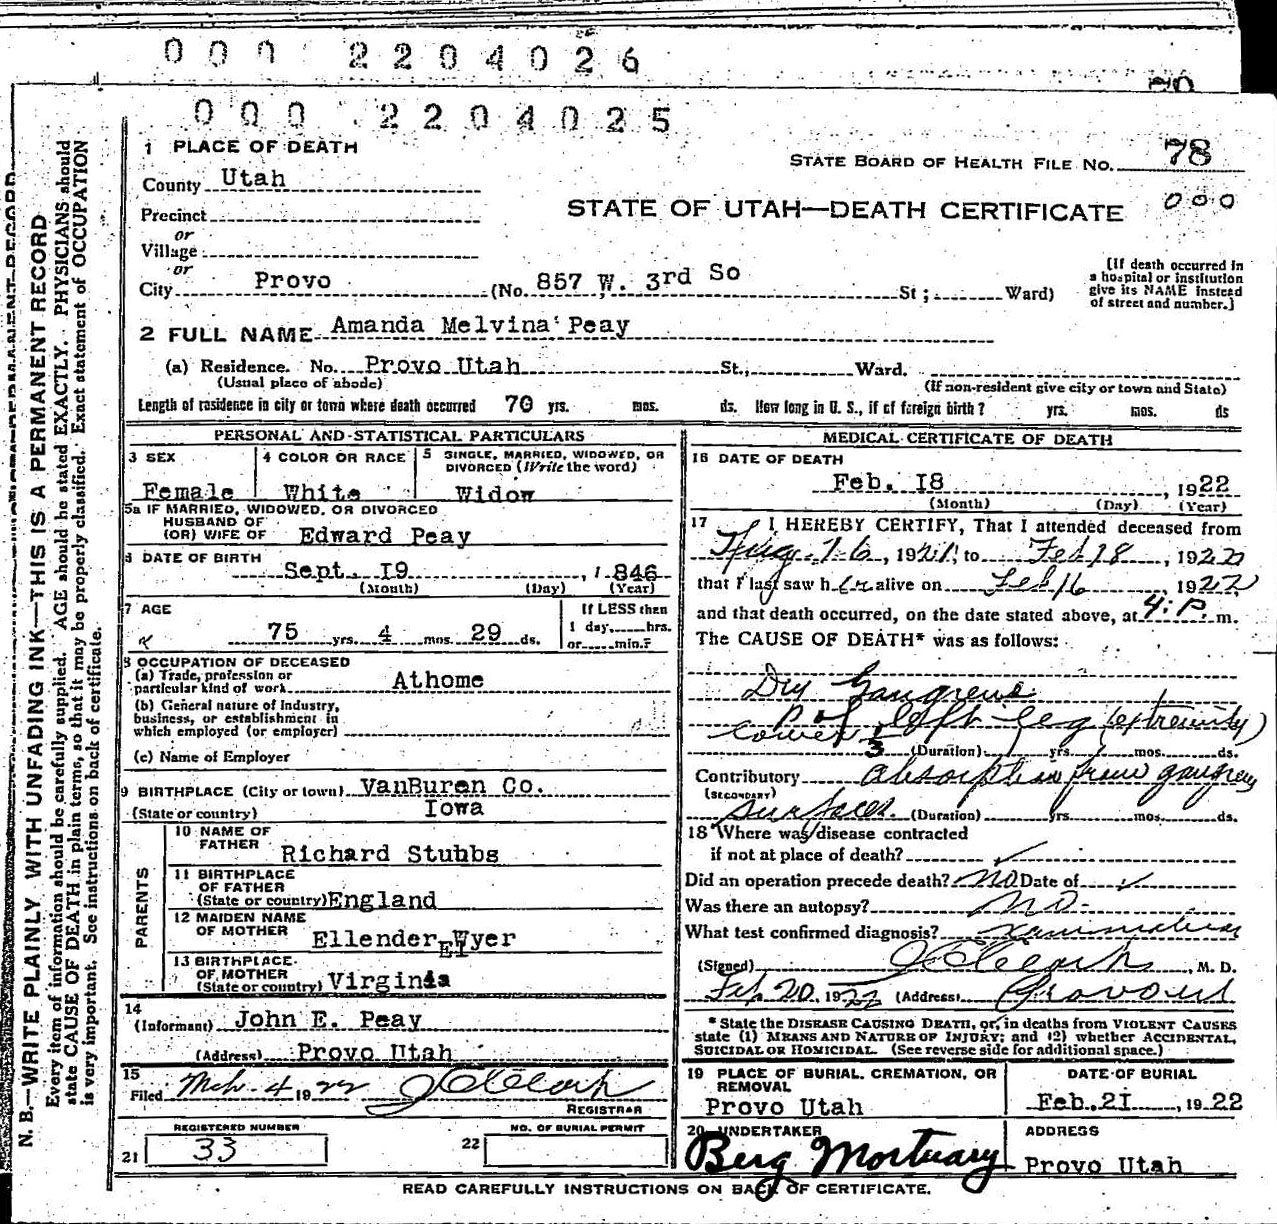 000 2204026
000 2204025
1 PLACE OF DEATH
STATE BOARD OF HEALTH FILE NO. 78
County Utah
STATE OF UTAH—DEATH CERTIFICATE 000
Precinct
or
Village
or
City Provo (No. 857 W. 3rd So St; Ward)
[If death occurred in
a hospital or institution
give its NAME instead
of street and number.]
2 FULL NAME Amanda Melvina Peay
(a) Residence. No. Provo Utah St.; Ward.
(Usual place of abode) (If non-resident give city or town and State)
Length of residence in city or town where death occurred 70 yrs. mos. ds. How long in U. S., if of foreign birth? yrs. mos. ds
PERSONAL AND STATISTICAL PARTICULARS
3 SEX 4 COLOR OR RACE 5 SINGLE, MARRIED, WIDOWED, OR
DIVORCED (Write the word)
Female White Widow
5a IF MARRIED, WIDOWED, OR DIVORCED
HUSBAND OF
(OR) WIFE OF Edward Peay
6 DATE OF BIRTH
Sept. I9, 1846
(Month) (Day) (Year)
7 AGE If LESS then
75 yrs. 4 mos. 29 ds. 1 day, hrs.
or min.?
8 OCCUPATION OF DECEASED
(a) Trade, profession or
particular kind of work Athome
(b) General nature of Industry,
business, or establishment in
which employed (or employer)
(c) Name of Employer
9 BIRTHPLACE (City or town) VanBuren Co.
(State or country) Iowa
PARENTS
10 NAME OF
FATHER
Richard Stubbs
11 BIRTHPLACE
OF FATHER
(State or country) England
12 MAIDEN NAME
OF MOTHER
Ellender Eyer
13 BIRTHPLACE
OF MOTHER
(State or country) Virginia
14
(Informant) John E. Peay
(Address) Provo Utah
15
Filed Mch. 4 1922 J C Clark
REGISTRAR
REGISTERED NUMBER NO. OF BURIAL PERMIT
21 33 22
MEDICAL CERTIFICATE OF DEATH
16 DATE OF DEATH
Feb. I8, 1922
(Month) (Day) (Year)
17 I HEREBY CERTIFY, That I attended deceased from
Aug 16, 1921, to Feb 18, 1922
that I last saw her alive on Feb 16 1922
and that death occurred, on the date stated above, at 4:P m.
The CAUSE OF DEATH* was as follows:
Dry Gangrene
Lower of left leg (extremity)
3 (Duration) yrs. mos. ds.
Contributory absorption from gangrene
(SECONDARY)
surfaces. (Duration) yrs. mos. ds.
18 Where was disease contracted
if not at place of death?
Did an operation precede death? No Date of
Was there an autopsy? No.
What test confirmed diagnosis? Examination
(Signed) J C Clark, M. D.
Feb 20, 1922 (Address) Provo Ut
* State the DISEASE CAUSING DEATH, or, in deaths from VIOLENT CAUSES
state (1) MEANS AND NATURE OF INJURY; and (2) whether ACCIDENTAL,
SUICIDAL OR HOMICIDAL. (See reverse side for additional space.)
19 PLACE OF BURIAL, CREMATION, OR
REMOVAL
Provo Utah
DATE OF BURIAL
Feb. 2I, 1922
20 UNDERTAKER
Berg Mortuary
ADDRESS
Provo Utah
READ CAREFULLY INSTRUCTIONS ON BACK OF CERTIFICATE.
N. B.—WRITE PLAINLY WITH UNFADING INK—THIS IS A PERMANENT RECORD
Every item of information should be carefully supplied. AGE should be stated EXACTLY. PHYSICIANS should
state CAUSE OF DEATH in plain terms, so that it may be properly classified. Exact statement of OCCUPATION
is very important. See instructions on back of certificate.